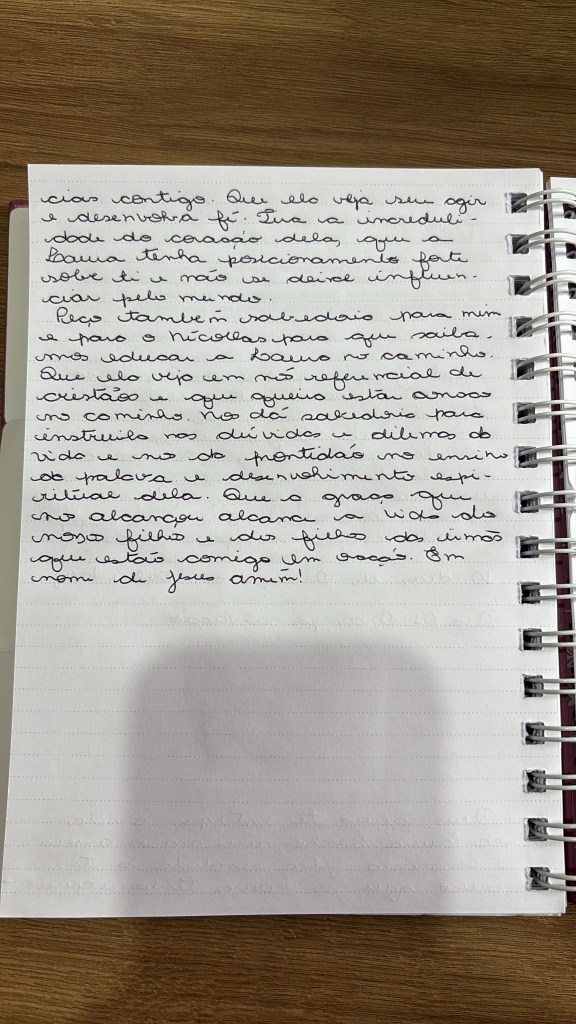 cias contigo. Que ela veja seu agir
e desenvolva fé. Tira a increduli-
dade do coração dela, que a
Laura tenha posicionamento forte
sobre ti e não se deixe influen-
ciar pelo mundo.
Peço também sabedoria para mim
e para o Nicollas para que saiba-
mos educar a Laura no caminho.
Que ela veja em nós referencial de
cristãos e que queira estar conosco
no caminho. Nos dá sabedoria para
instruila nas dúvidas e dilemas da
vida e nos dá prontidão no ensino
da palavra e desenvolvimento espi-
ritual dela. Que a graça que
nos alcançou alcance a vida da
nossa filha e dos filhos das irmãs
que estão comigo em oração. Em
nome de Jesus amém!